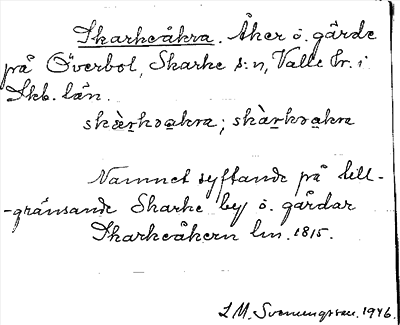 Skarkeåkra. Åker o. gärde
på Överbol, Skarke s:n, Valle hr. i
Skb. län.
skàrkəakra; skàrkəakra
Namnet syftande på till-
-gränsande Skarke by o. gårdar
Skarkeåkern lm. 1815.
L.M. Svennungsson. 1946.